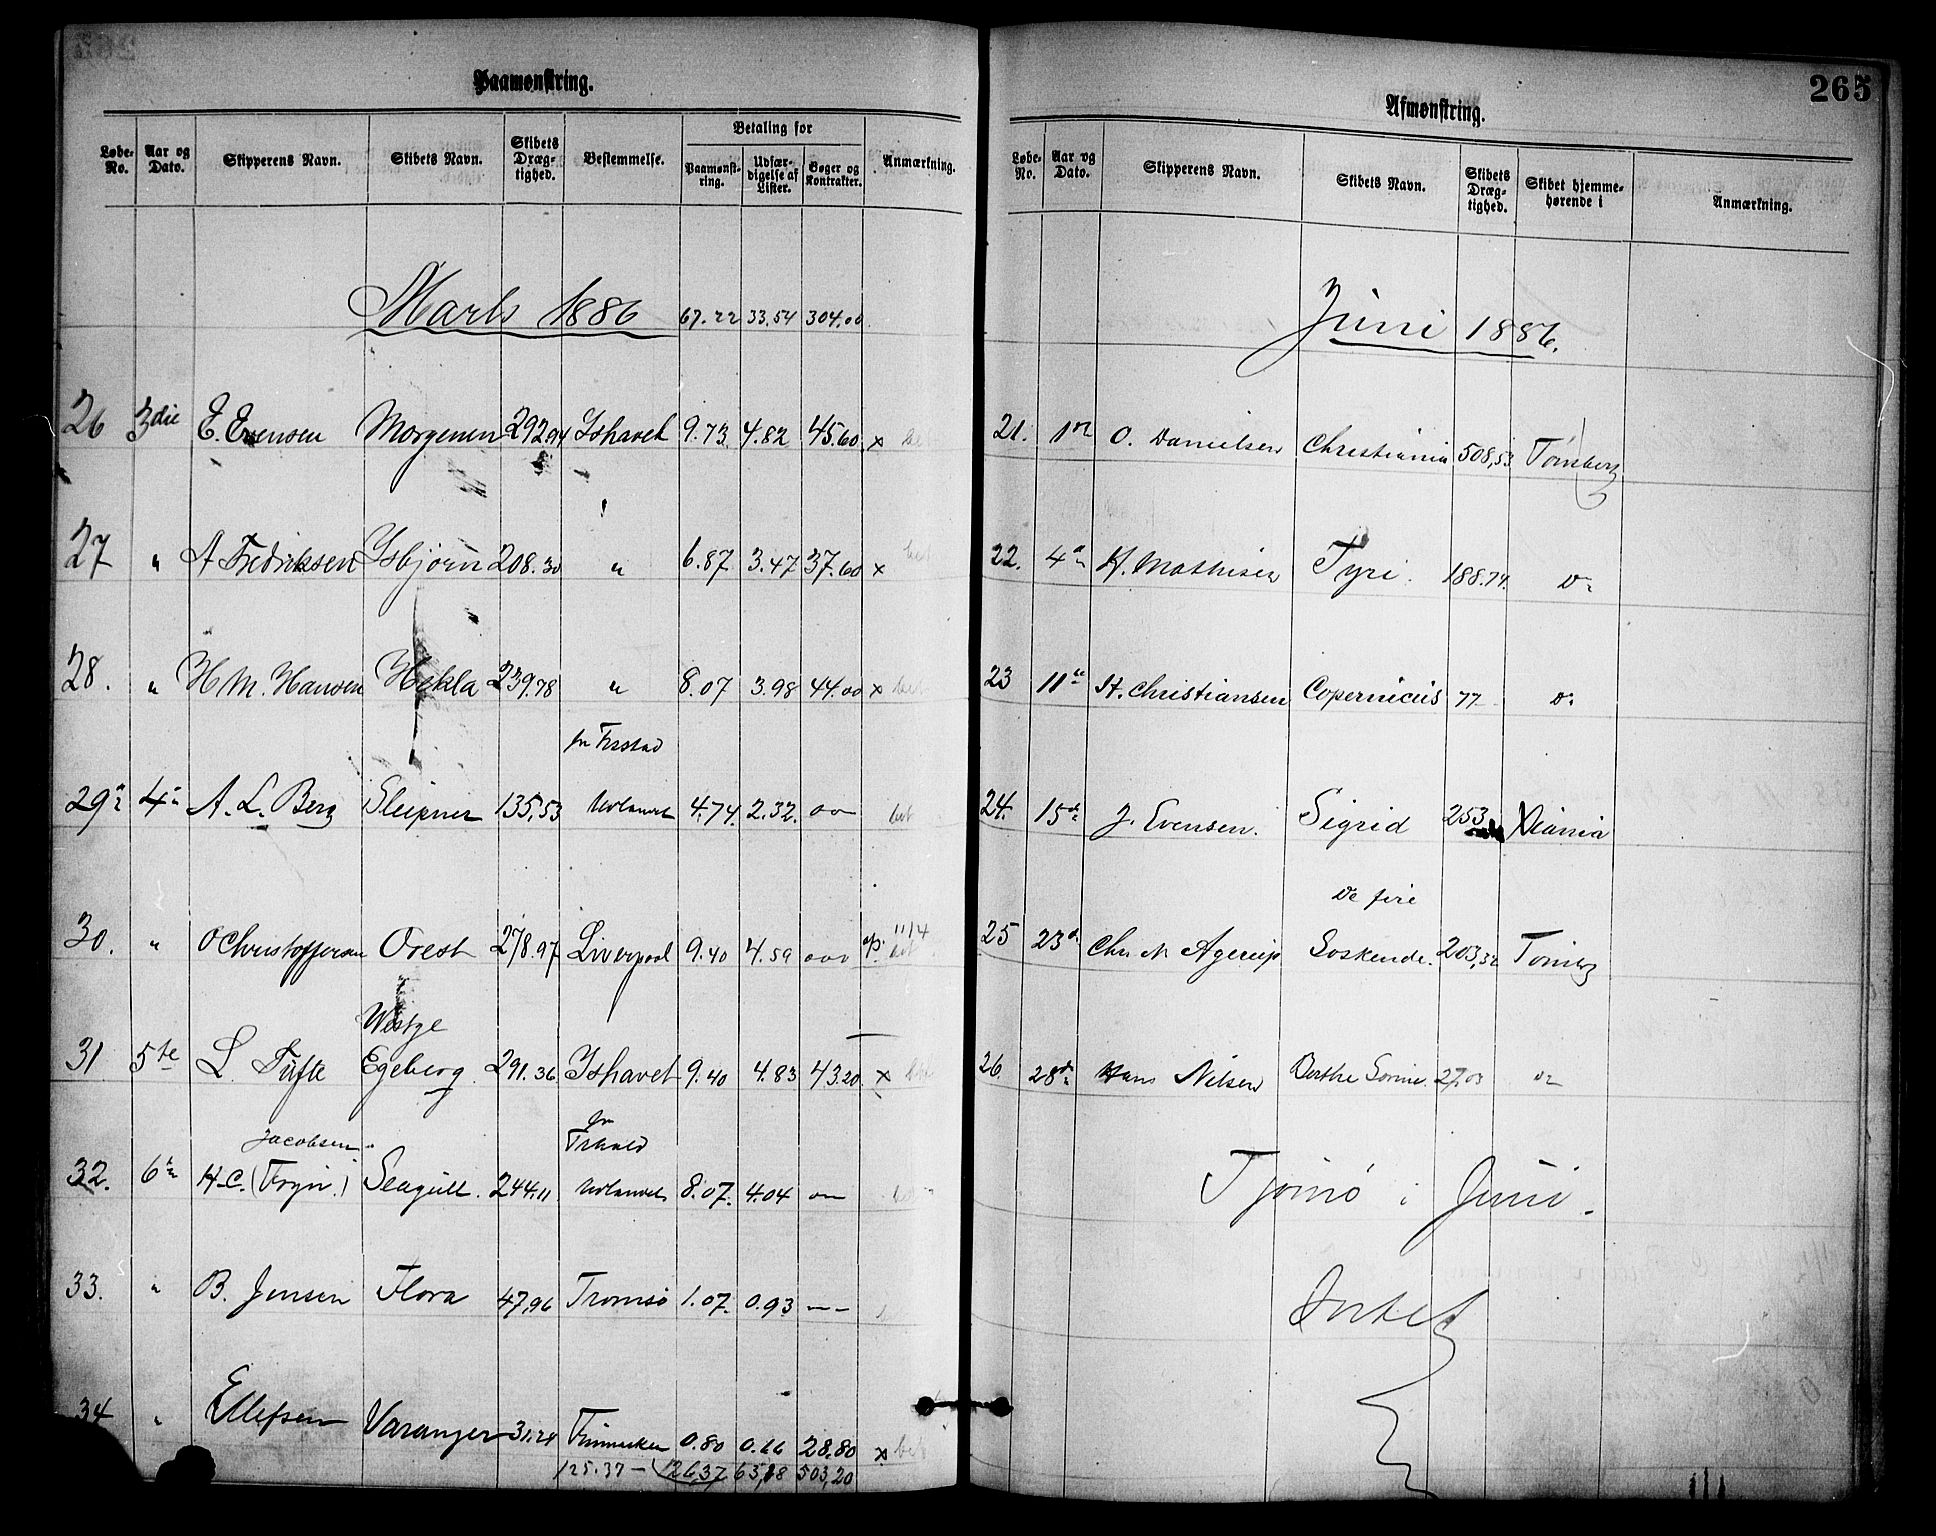 Paamønstring.
Løbe-No. Aar og Dato. Skipperens Navn. Skibets Navn. Skibets Dræg-tighed. Bestemmelse. Betaling for Paamønst-ring. Udfær-digelse af Lister. Bøger og Kontrakter. Anmærkning.
Marts 1886 67.22 33.54 304.00
26 3die E. Evensen Morgenen 292.94 Ishavet 9.73 4.82 45.60 x
27 " A Fredriksen Isbjørn 208.30 " 6.87 3.47 37.60 x bet
28. " H M. Hansen Hekla 239.78 " 8.07 3.98 44.00 x bet
fr Frstad
29 4 A. L. Berg Sleipner 135,53 Udlandet 4.74. 2.32. bet
30. " O Christoffersen Orest 278.97 Liverpool 9.40 4.59 11/4 bet
Westye
31 5te L. Tufte Egeberg 291.36 Ishavet 9.40 4.83 43.20 x
Jacobsen fr Frhald
32. 6 H. C. (Fryn.) Seagull. 244.11 Udlandet 8.07. 4.04
33. " B. Jensen Flora 47,96 Tromsø 1.07. 0.93 — —
34 " Ellefsen Varanger 31.24 Finmarken 0.80 0.66 28.80 x bet
125.37 — 126,37 65,18 503,20
265
Afmønstring.
Løbe-No. Aar og Dato. Skipperens Navn. Skibets Navn. Skibets Dræg-tighed. Skibet hjemme-hørende i Anmærkning.
Juni 1886.
21. 1 O. Danielsen Christiania 508,53 Tønsberg
22. 4 H. Mathisen Tyri. 188.74.
23 11te H. Christiansen Copernicus 77
24. 15de J. Evensen. Sigrid 253 Xiania
De fire
25 23d Chr. M Agerup Søskende. 203,32 Tønsbg
26. 28d Hans Nilsen Berthe Sorine. 27,03
Tjømø i Juni.
Intet